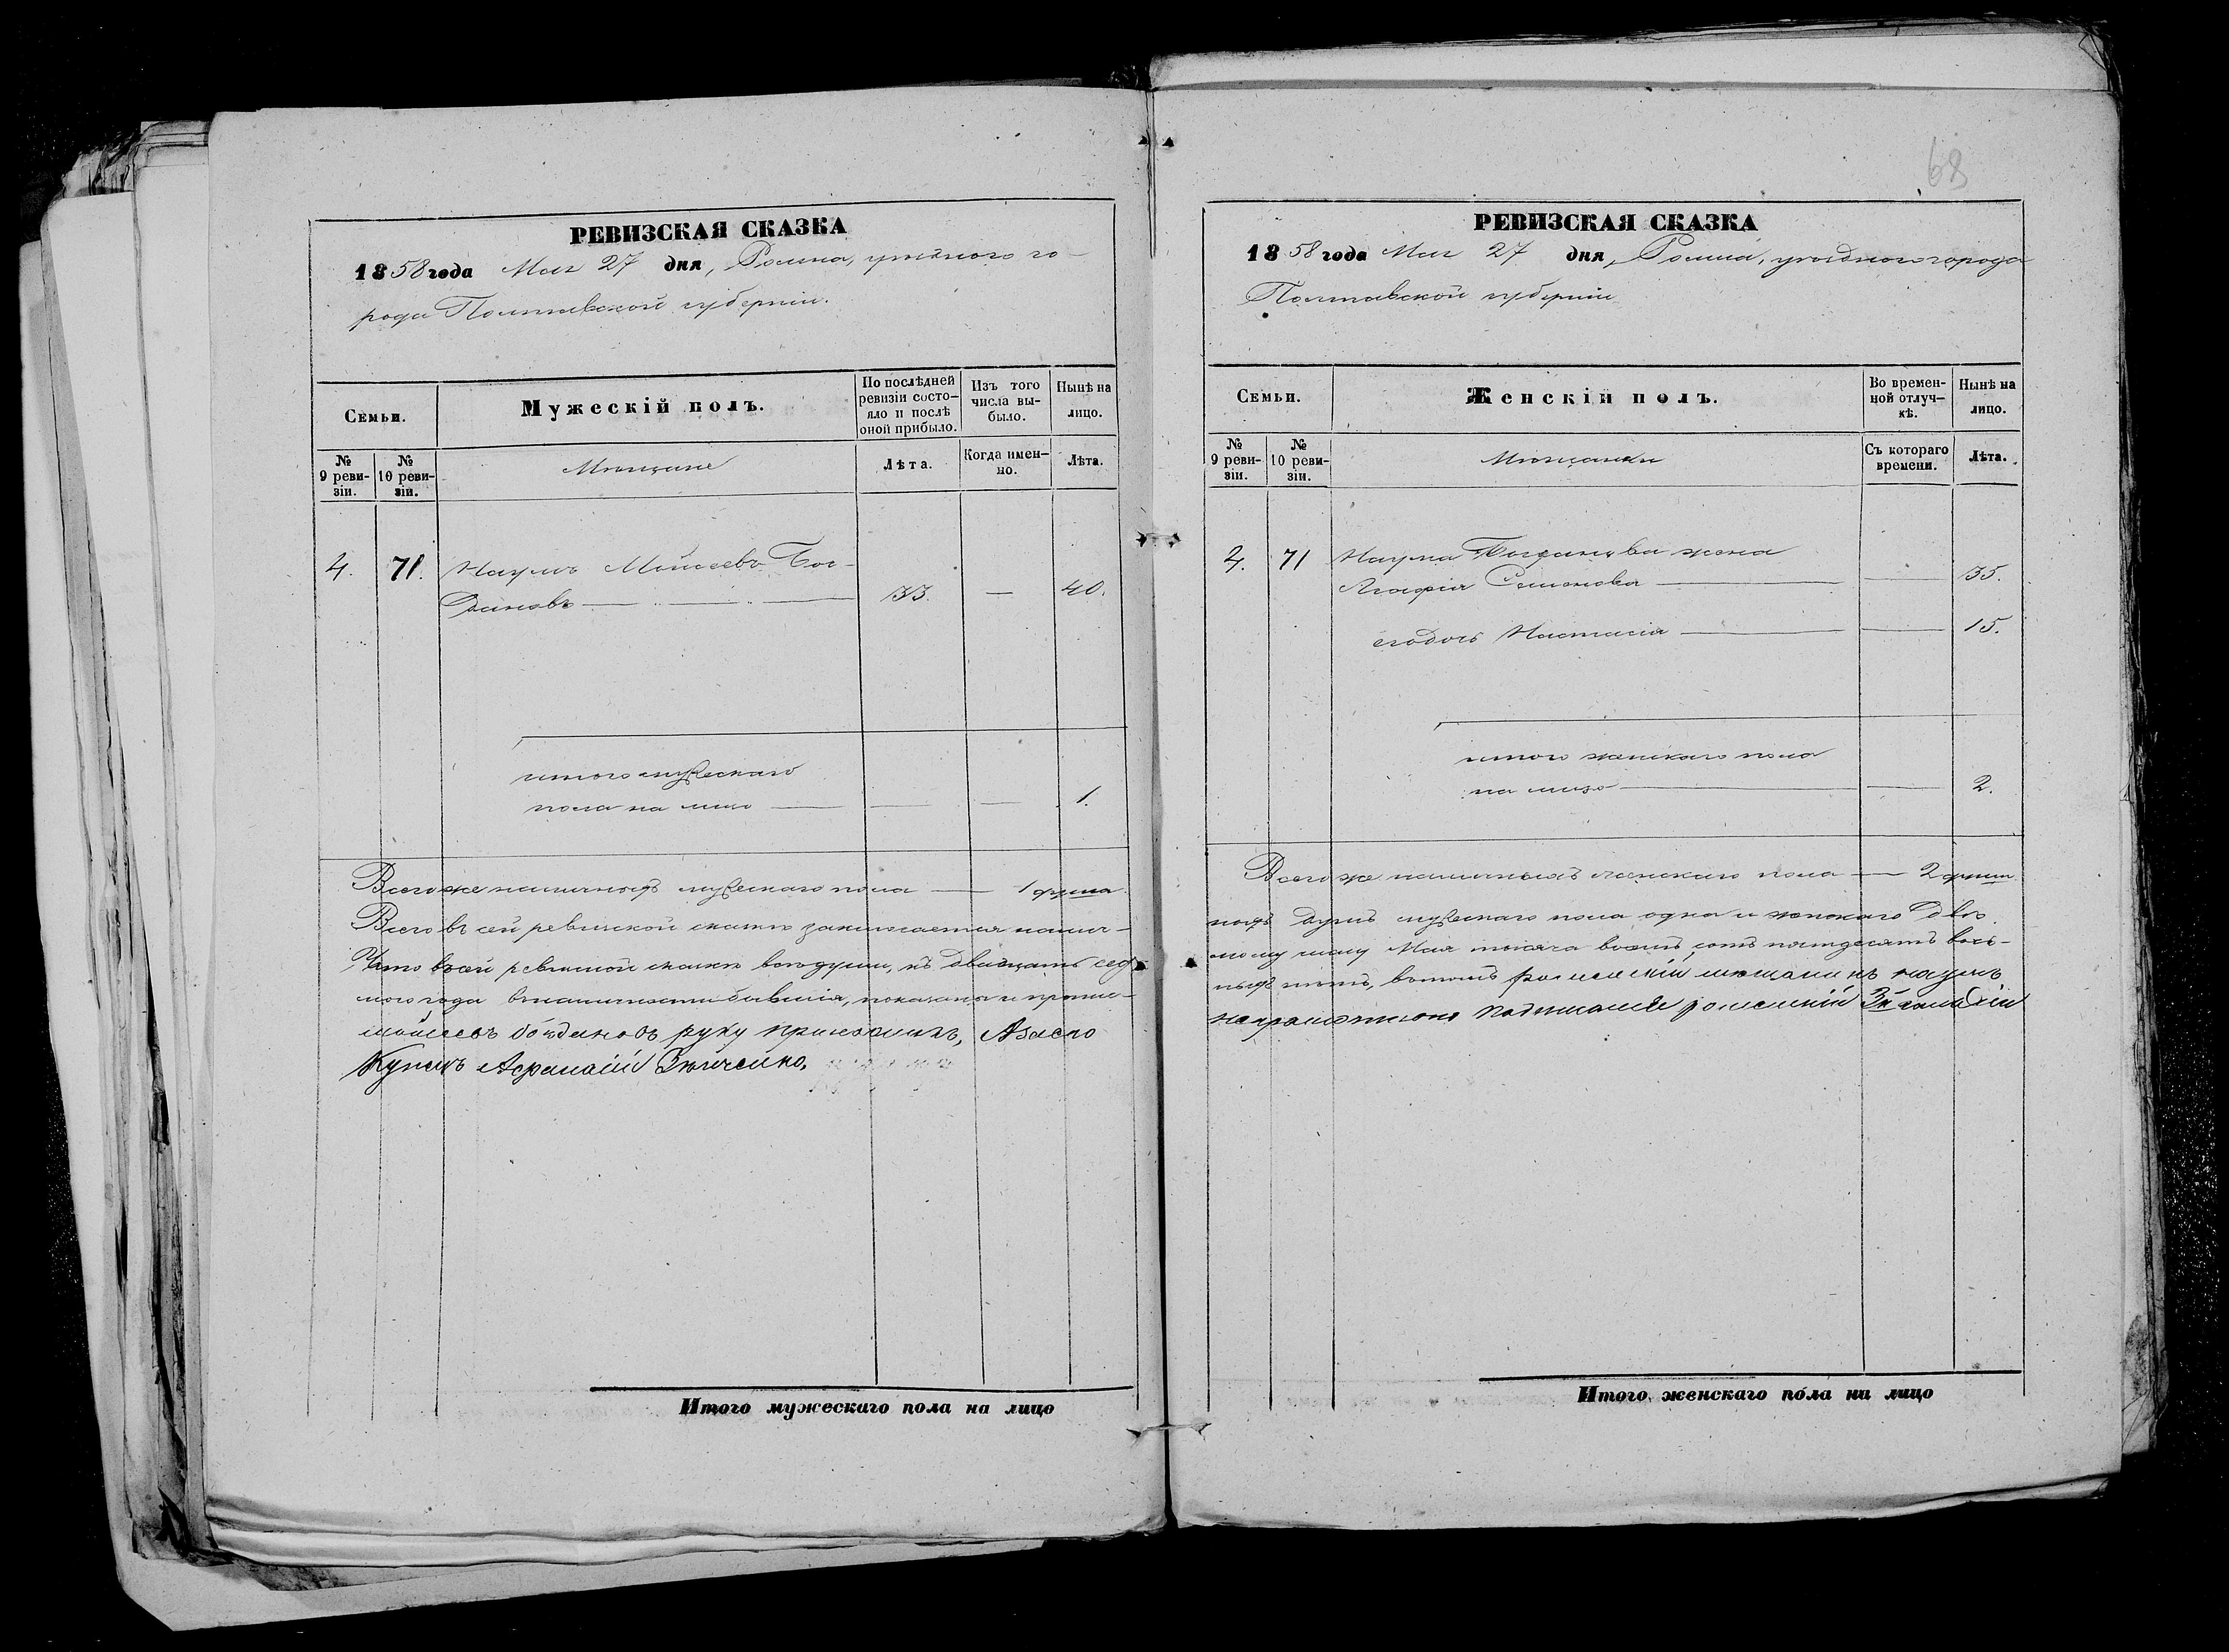 РЕВИЗСКАЯ СКАЗКА
1858 года Мая 27 дня, Ромна, уѣзднаго го-
рода Полтавской губерніи.
Семьи.
Мужескій полъ.
По послѣдней ревизіи состо-яло и послѣ оной прибыло.
Изъ того числа вы-было.
Нынѣ на лицо.
№ 9 реви-зіи.
№ 10 реви-зіи.
Мѣщане
Лѣта.
Когда имен-но.
Лѣта.
4. 71. Наумъ Мойсеевъ Бог-
дановъ 33. — 40.
итого мужескаго
пола на лицо 1.
Всего же наличныхъ мужескаго пола — 1 душа.
Всего въ сей ревизской сказкѣ заключается налич-
Что въ сей ревизской сказкѣ всѣ души, къ двадцать седь
мого года въ наличности бывшія, показаны и
мойсеевъ богдановъ руку приложилъ, Азаего
Купецъ
68
РЕВИЗСКАЯ СКАЗКА
1858 года Мая 27 дня, Ромна, уѣзднаго города
Полтавской губерніи
Семьи.
Женскій полъ.
Во времен-ной отлуч-кѣ.
Нынѣ на лицо.
№ 9 реви-зіи.
№ 10 реви-зіи.
Мѣщанки
Съ котораго времени.
Лѣта.
4. 71 Наума Богданова жена
Агафія Семенова 35.
его дочь Настасія 15.
итого женскаго пола
на лицо 2.
Всего же наличныхъ женскаго пола — 2 души.
ныхъ душъ мужескаго пола одна и женскаго двѣ.
мому числу Мая тысяча восемь сотъ пятдесятъ вось-
нѣтъ, въ томъ роменскій мѣщанинъ наумъ
неграмотного подписался роменскій
Итого мужескаго пола на лицо
Итого женскаго пола на лицо